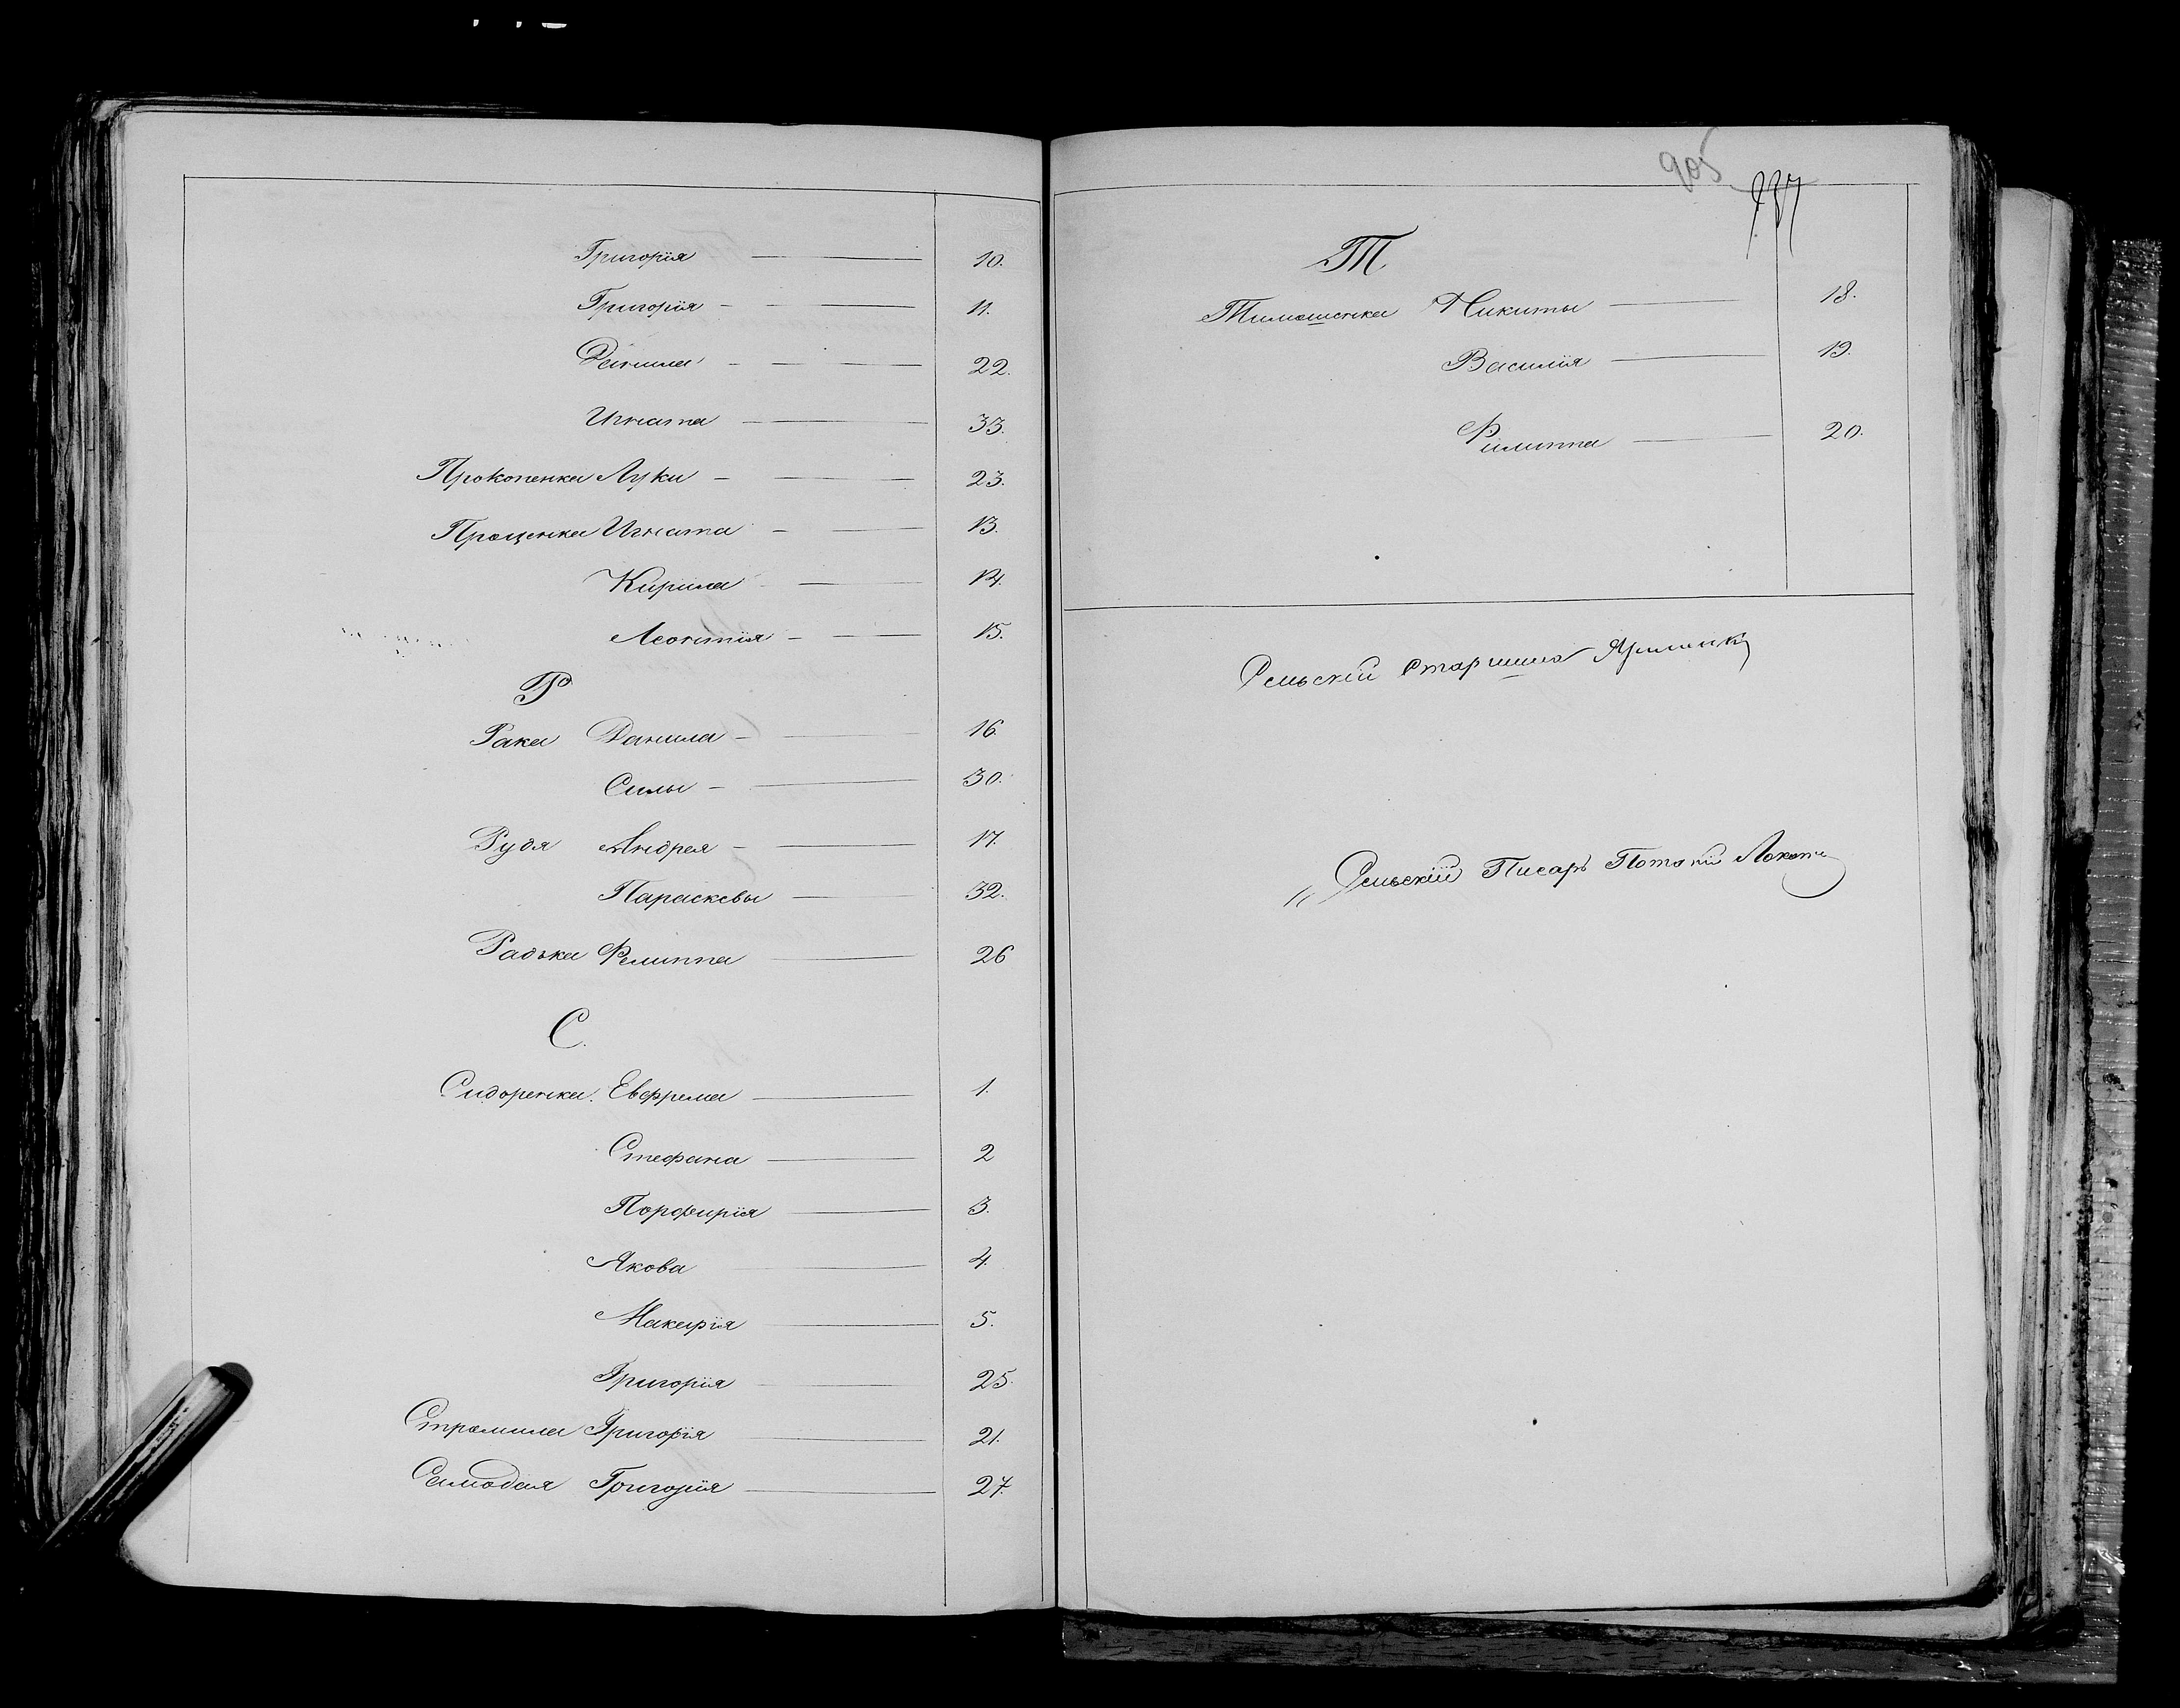 Григорія 10.
Григорія 11.
Данила 22.
Игната 33.
Прокопенка Луки 23.
Проценка Игната 13.
Кирила 14.
Леонтія 15.
Р
Рака Данила 16
Силы 30.
Рудя Андрея 17.
Параскевы 32.
Радька Филиппа 26
С.
Сидоренка. Евфрема 1.
Стефана 2
Порфирія 3.
Якова 4.
Макарія 5.
Григорія 25.
Стромила Григорія 21.
Самодая Григорія 27.
905
737
Т
Тимошенка Никиты 18.
Василія 19.
Филиппа 20.
Сельскій Старшина
Сельскій Писарь